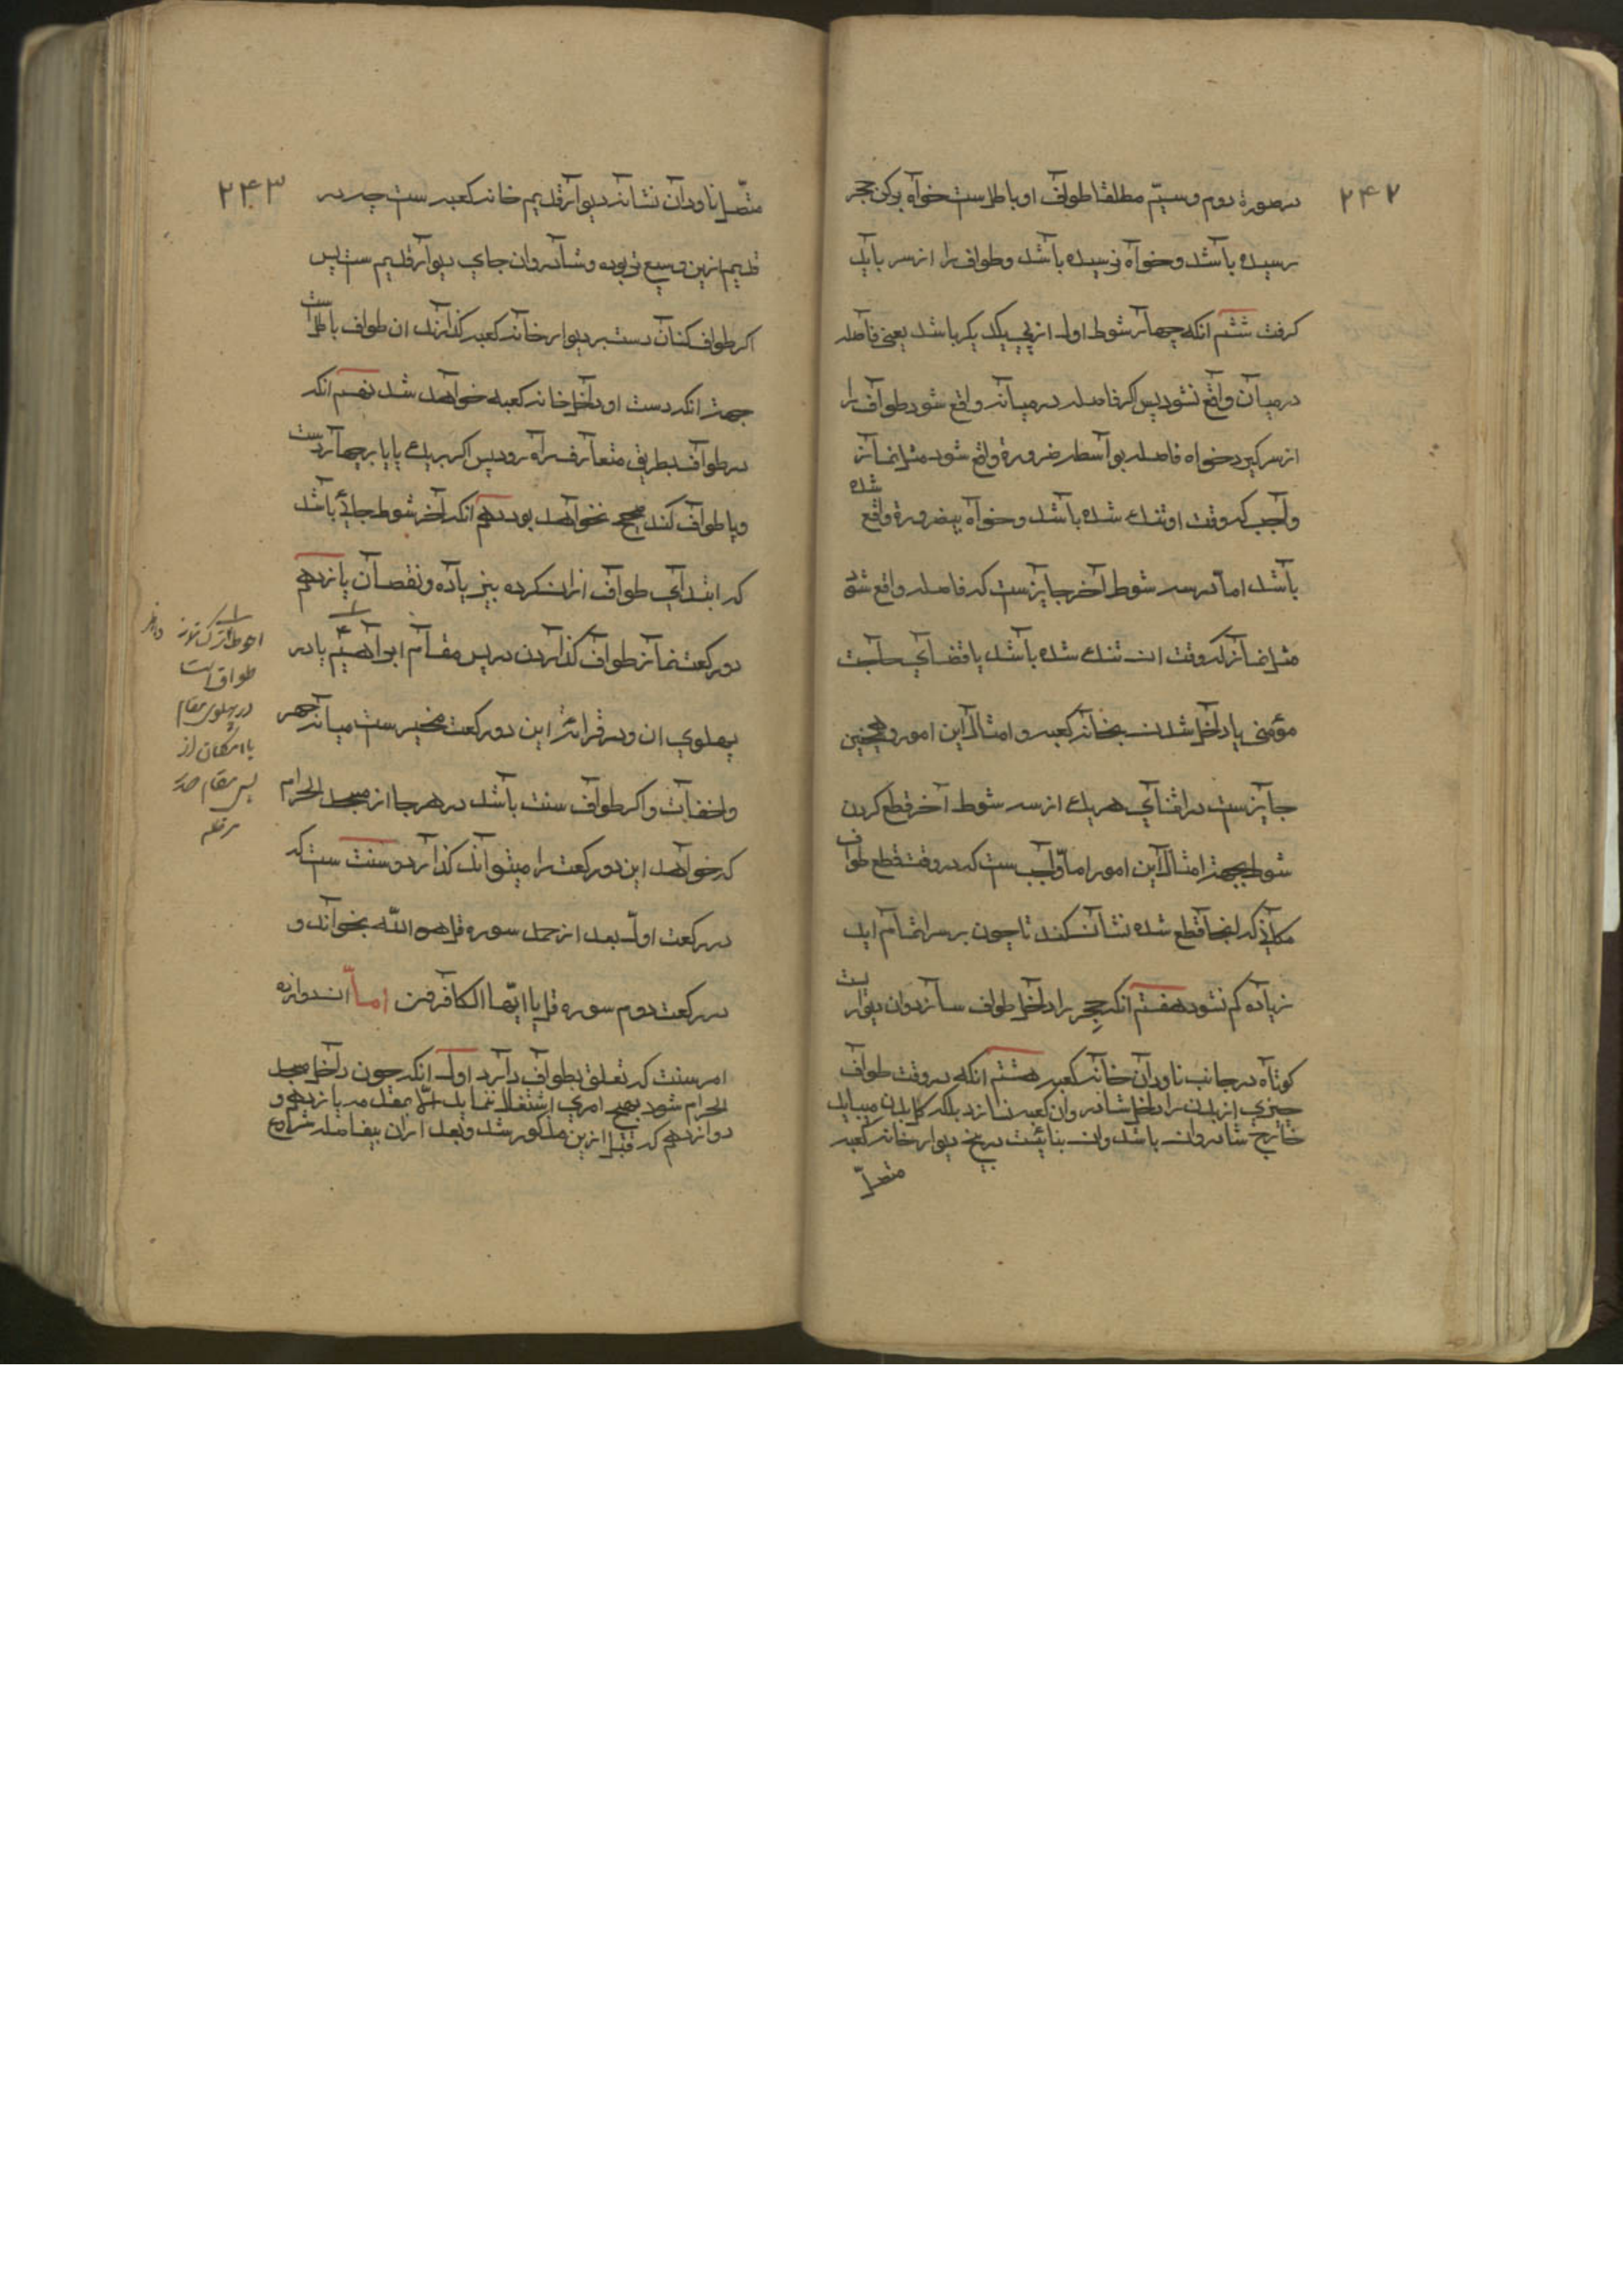 ۲۴۲
در صورة دوم و سیّم مطلقا طواف او باطلست خواه برکن حجر
رسیده باشد و خواه نرسیده باشد و طواف را از سر باید
کرفت ششم انکه چهار شوط اول از پی یکدیکر باشد یعنی فاصله
در میان واقع نشود پس اکر فاصله در میانه واقع شود طواف را
از سر کیرد خواه فاصله بواسطه ضرورة واقع شود مثل نماز
واجب که وقت او تنك شده باشد و خواه بیضرورة واقع شده
باشد اما در سه شوط آخر جایزست که فاصله واقع شود
مثل نماز که وقت ان تنك شده باشد یا قضای حاجت
مؤمنی یا داخل شدن بخانه کعبه و امثال این امور و همچنین
جایزست در اثنای هر یك از سه شوط آخر قطع کردن
شوط بجهة امثال این امور اما واجب ست که در وقت قطع طواف
مکانی که انجا قطع شده نشان کند تا چون بر سر اتمام اید
زیاده کم نشود هفتم انکه حجر را داخل طواف سازد و ان دیواریست
کوتاه در جانب ناودان خانه کعبه هشتم انکه در وقت طواف
چیزی از بدن را داخل شادروان کعبه نسازد بلکه کل بدن میباید
خارج شادروان باشد و ان بنائیست در بیخ دیوار خانه کعبه
متصل
۲۴۳
متصل ناودان نشانه دیوار قدیم خانه کعبه ست چه در
قدیم ازین وسیع تر بوده و شادروان جای دیوار قدیم ست پس
اکر طواف کنان دست بر دیوار خانه کعبه کذارند ان طواف باطل است
جهة انکه دست او داخل خانه کعبه خواهد شد نهم انکه
در طواف بطریق متعارف راه رود پس اکر بر یك پا یا بر چهار دست
و پا طواف کند صحیح نخواهد بود دهم انکه آخر شوط جائی باشد
که ابتدای طواف ازان کرده بیزیاده و نقصان یازدهم
دو رکعت نماز طواف کذاردن در پس مقام ابراهیم یا در
پهلوی ان و در قرائة این دو رکعت مخیر ست میانه جهر
و اخفات و اکر طواف سنت باشد در هر جا از مسجد الحرام
که خواهد این دو رکعت را میتواند کذارد و سنت ست که
در رکعت اول بعد از حمد سوره قل هو الله بخواند و
در رکعت دوم سوره قل یا ایّها الکافرون امّا ان دوازده
امر سنت که تعلق بطواف دارد اول انکه چون داخل مسجد
الحرام شود بهیچ امری اشتغال ننماید الّا بمقدمه یازدهم و
دوازدهم که قبل ازین مذکور شد و بعد ازان بیفاصله شروع
احوط ترک نماز
طواف است
در پهلوی مقام
با امکان از
پس مقام صدر